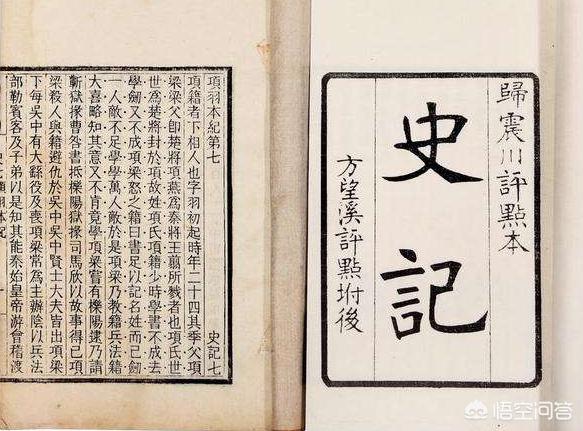 歸震川評點本
史記
方望溪評點坿後
項羽本紀第七
史記七
項籍者下相人也字羽初起時年二十四其季父項
梁梁父即楚將項燕爲秦將王翦所戮者也項氏世
世爲楚將封於項故姓項氏項籍少時學書不成去
學劍又不成項梁怒之籍曰書足以記名姓而已劍
一人敵不足學學萬人敵於是項梁乃教籍兵法籍
大喜略知其意又不肯竟學項梁嘗有櫟陽逮乃請
蘄獄掾曹咎書抵櫟陽獄掾司馬欣以故事得已項
梁殺人與籍避仇於吳中吳中賢士大夫皆出項梁
下每吳中有大繇役及喪項梁常爲主辦陰以兵法
部勒賓客及子弟以是知其能秦始皇帝游會稽渡
悟空问答